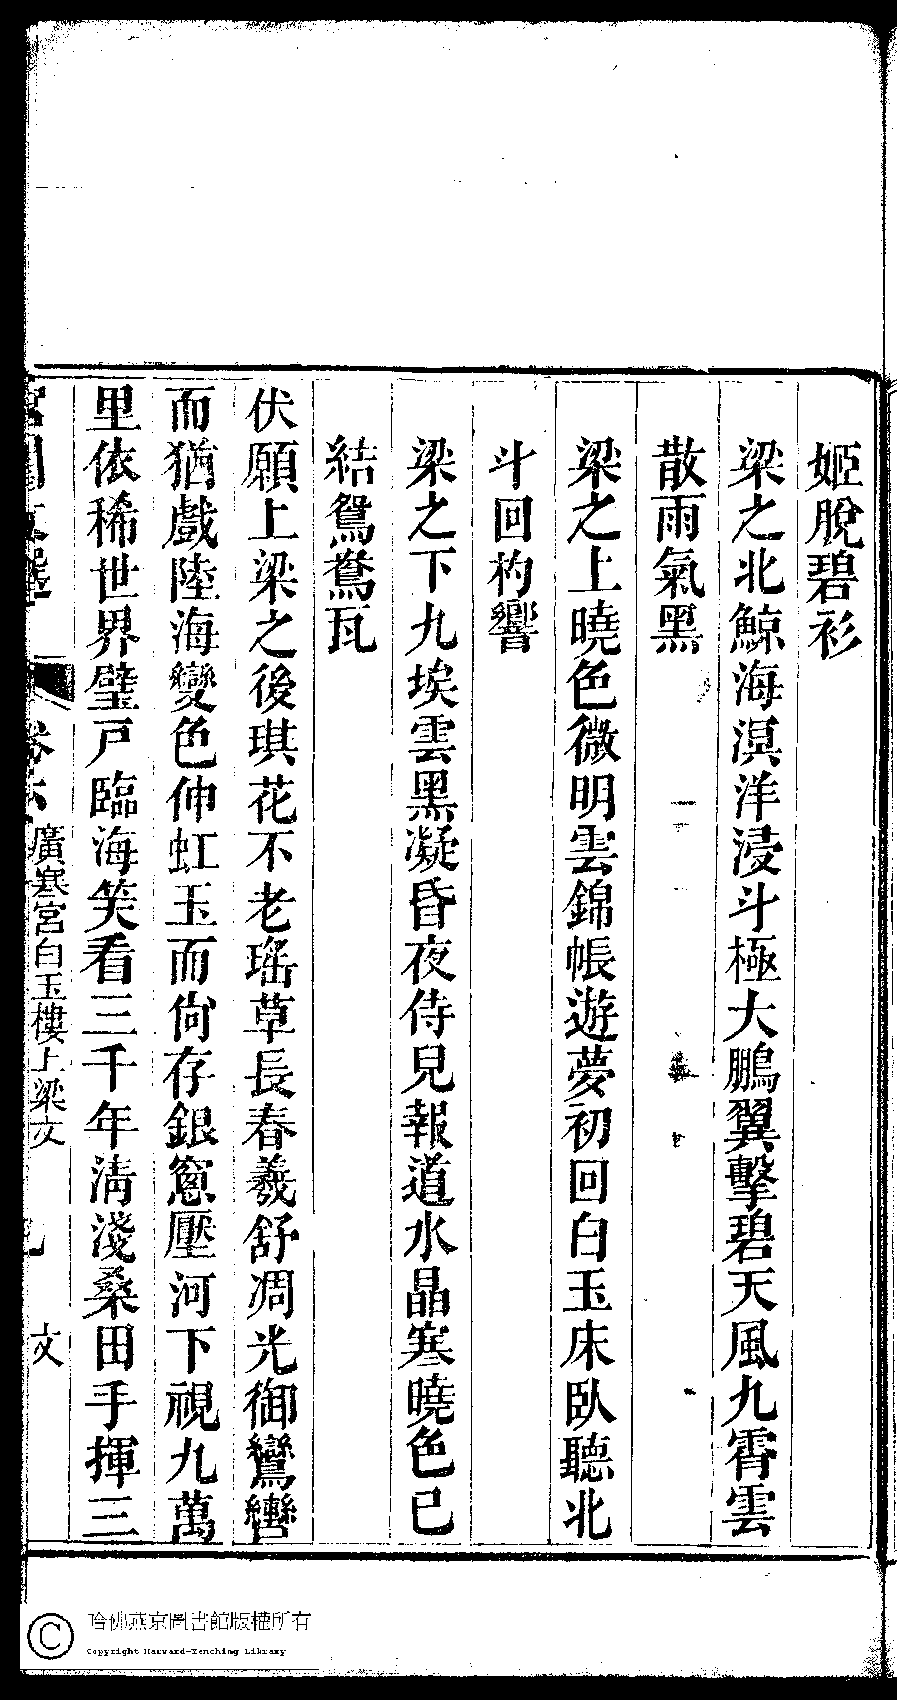 姬脫碧衫
梁之北鯨海溟洋浸斗極大鵬翼擊碧天風九霄雲
散雨氣黑
梁之上曉色微明雲錦帳遊夢初回白玉床臥聽北
斗回杓響
梁之下九埃雲黑凝昏夜侍兒報道水晶寒曉色已
結鴛鴦瓦
伏願上梁之後琪花不老瑤草長春羲舒凋光御鸞轡
而猶戲陸海變色伸虹玉而尙存銀窻壓河下視九萬
里依稀世界璧戸臨海笑看三千年淸淺桑田手揮三
宮閨文選 卷六 廣寒宮白玉樓上梁文 文
哈佛燕京圖書館版權所有
Copyright Harvard-Yenching Library